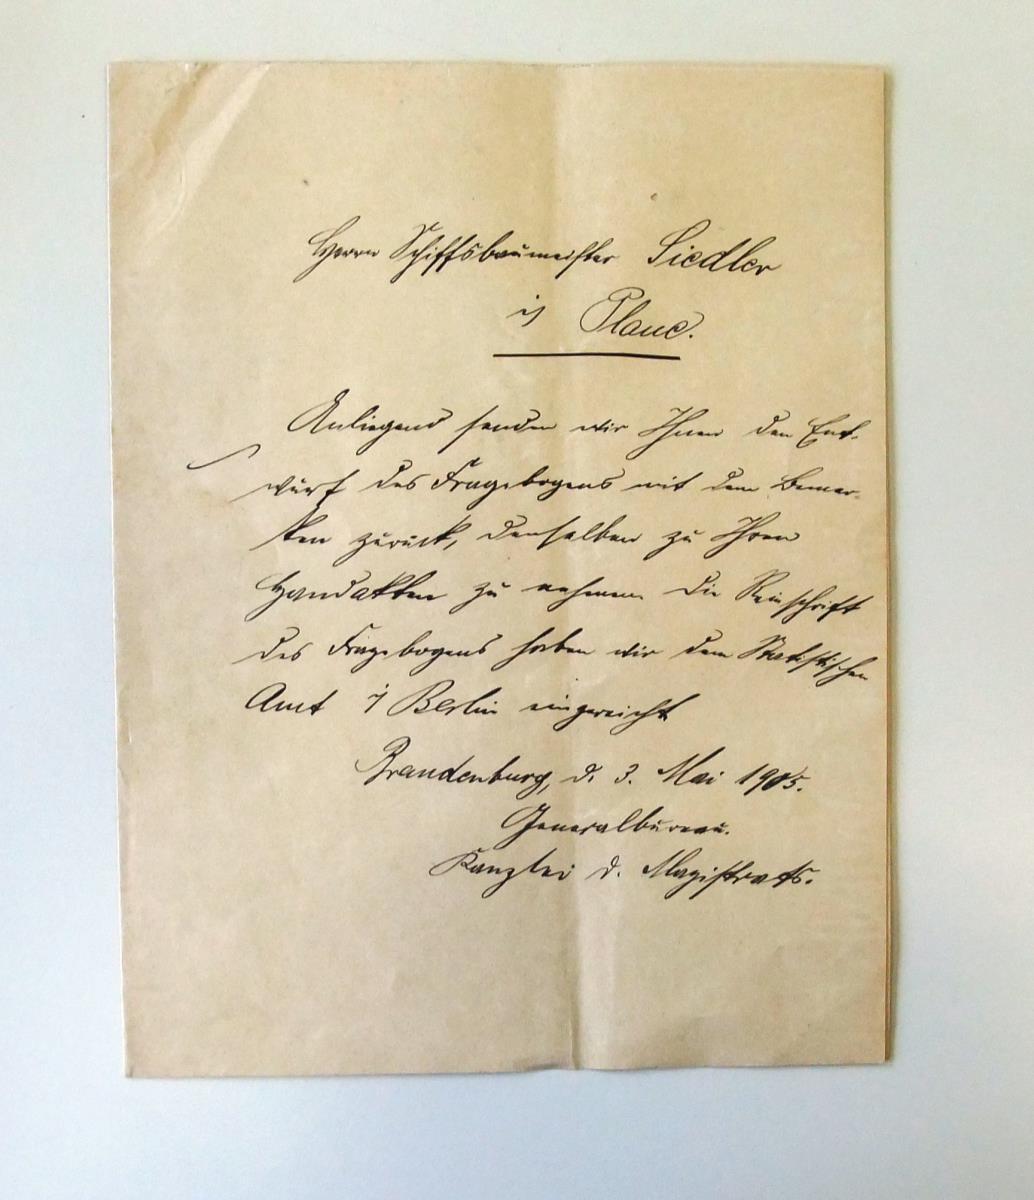 Herrn Schiffsbaumeister Siedler
in Plaue.
Anliegend senden wir Ihnen den Ent-
wurf des Fragebogens mit dem Bemer-
ken zurück, denselben zu Ihren
Handakten zu nehmen. Die Reinschrift
des Fragebogens haben wir dem Statistischen
Amt i/ Berlin eingereicht
Brandenburg, d. 3. Mai 1905.
Generalbureau.
Kanzlei d. Magistrats.